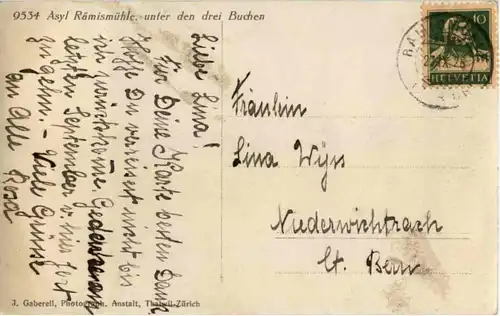 9534 Asyl Rämismühle, unter den drei Buchen
Liebe Lina!
Für Deine Karte besten Dank
Hoffe Du verreisest nicht bis
ich zurückkomme. Gedenke
letzten September v. hier fort
zu gehn. - Viele Grüsse
an Alle Rosa
Fräulein
Lina Wyss
Niederwichtrach
Ct. Bern
10
HELVETIA
J. Gaberell, Photograph. Anstalt, Thalwil-Zürich